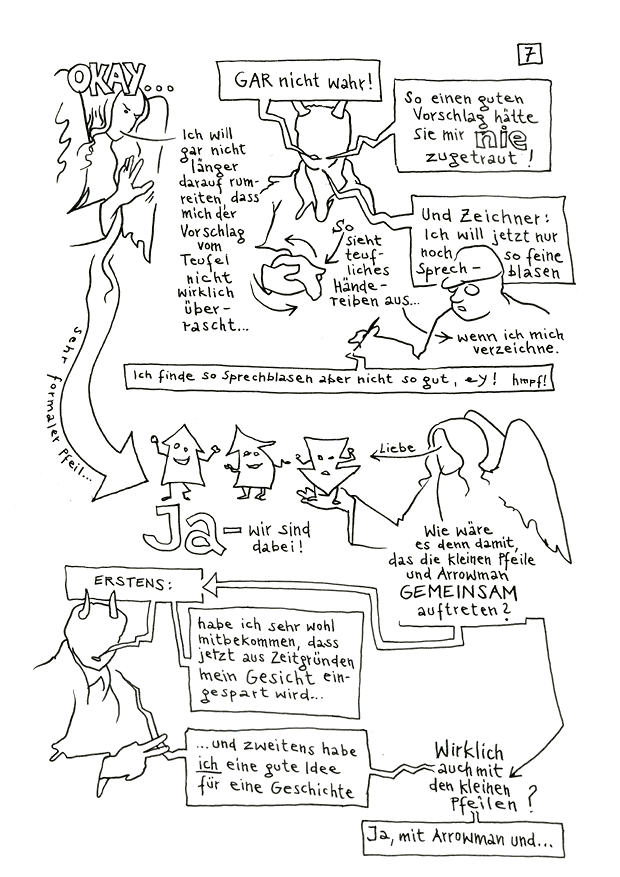 7
OKAY...
Ich will
gar nicht
länger
darauf rum-
reiten, dass
mich der
Vorschlag
vom
Teufel
nicht
wirklich
über-
rascht...
GAR nicht wahr!
So einen guten
Vorschlag hätte
Sie mir nie
zugetraut!
Und Zeichner:
Ich will jetzt nur
noch so feine
Sprech- blasen
So
sieht
teuf-
liches
Hände-
reiben aus...
wenn ich mich
verzeichne.
Ich finde so Sprechblasen aber nicht so gut, ey! hmpf!
sehr formaler Pfeil...
Liebe
Ja - wir sind
dabei!
Wie wäre
es denn damit,
das die kleinen Pfeile
und Arrowman
GEMEINSAM
auftreten?
ERSTENS:
habe ich sehr wohl
mitbekommen, dass
jetzt aus Zeitgründen
mein Gesicht ein-
gespart wird...
...und zweitens habe
ich eine gute Idee
für eine Geschichte
Wirklich
auch mit
den kleinen
Pfeilen?
Ja, mit Arrowman und...